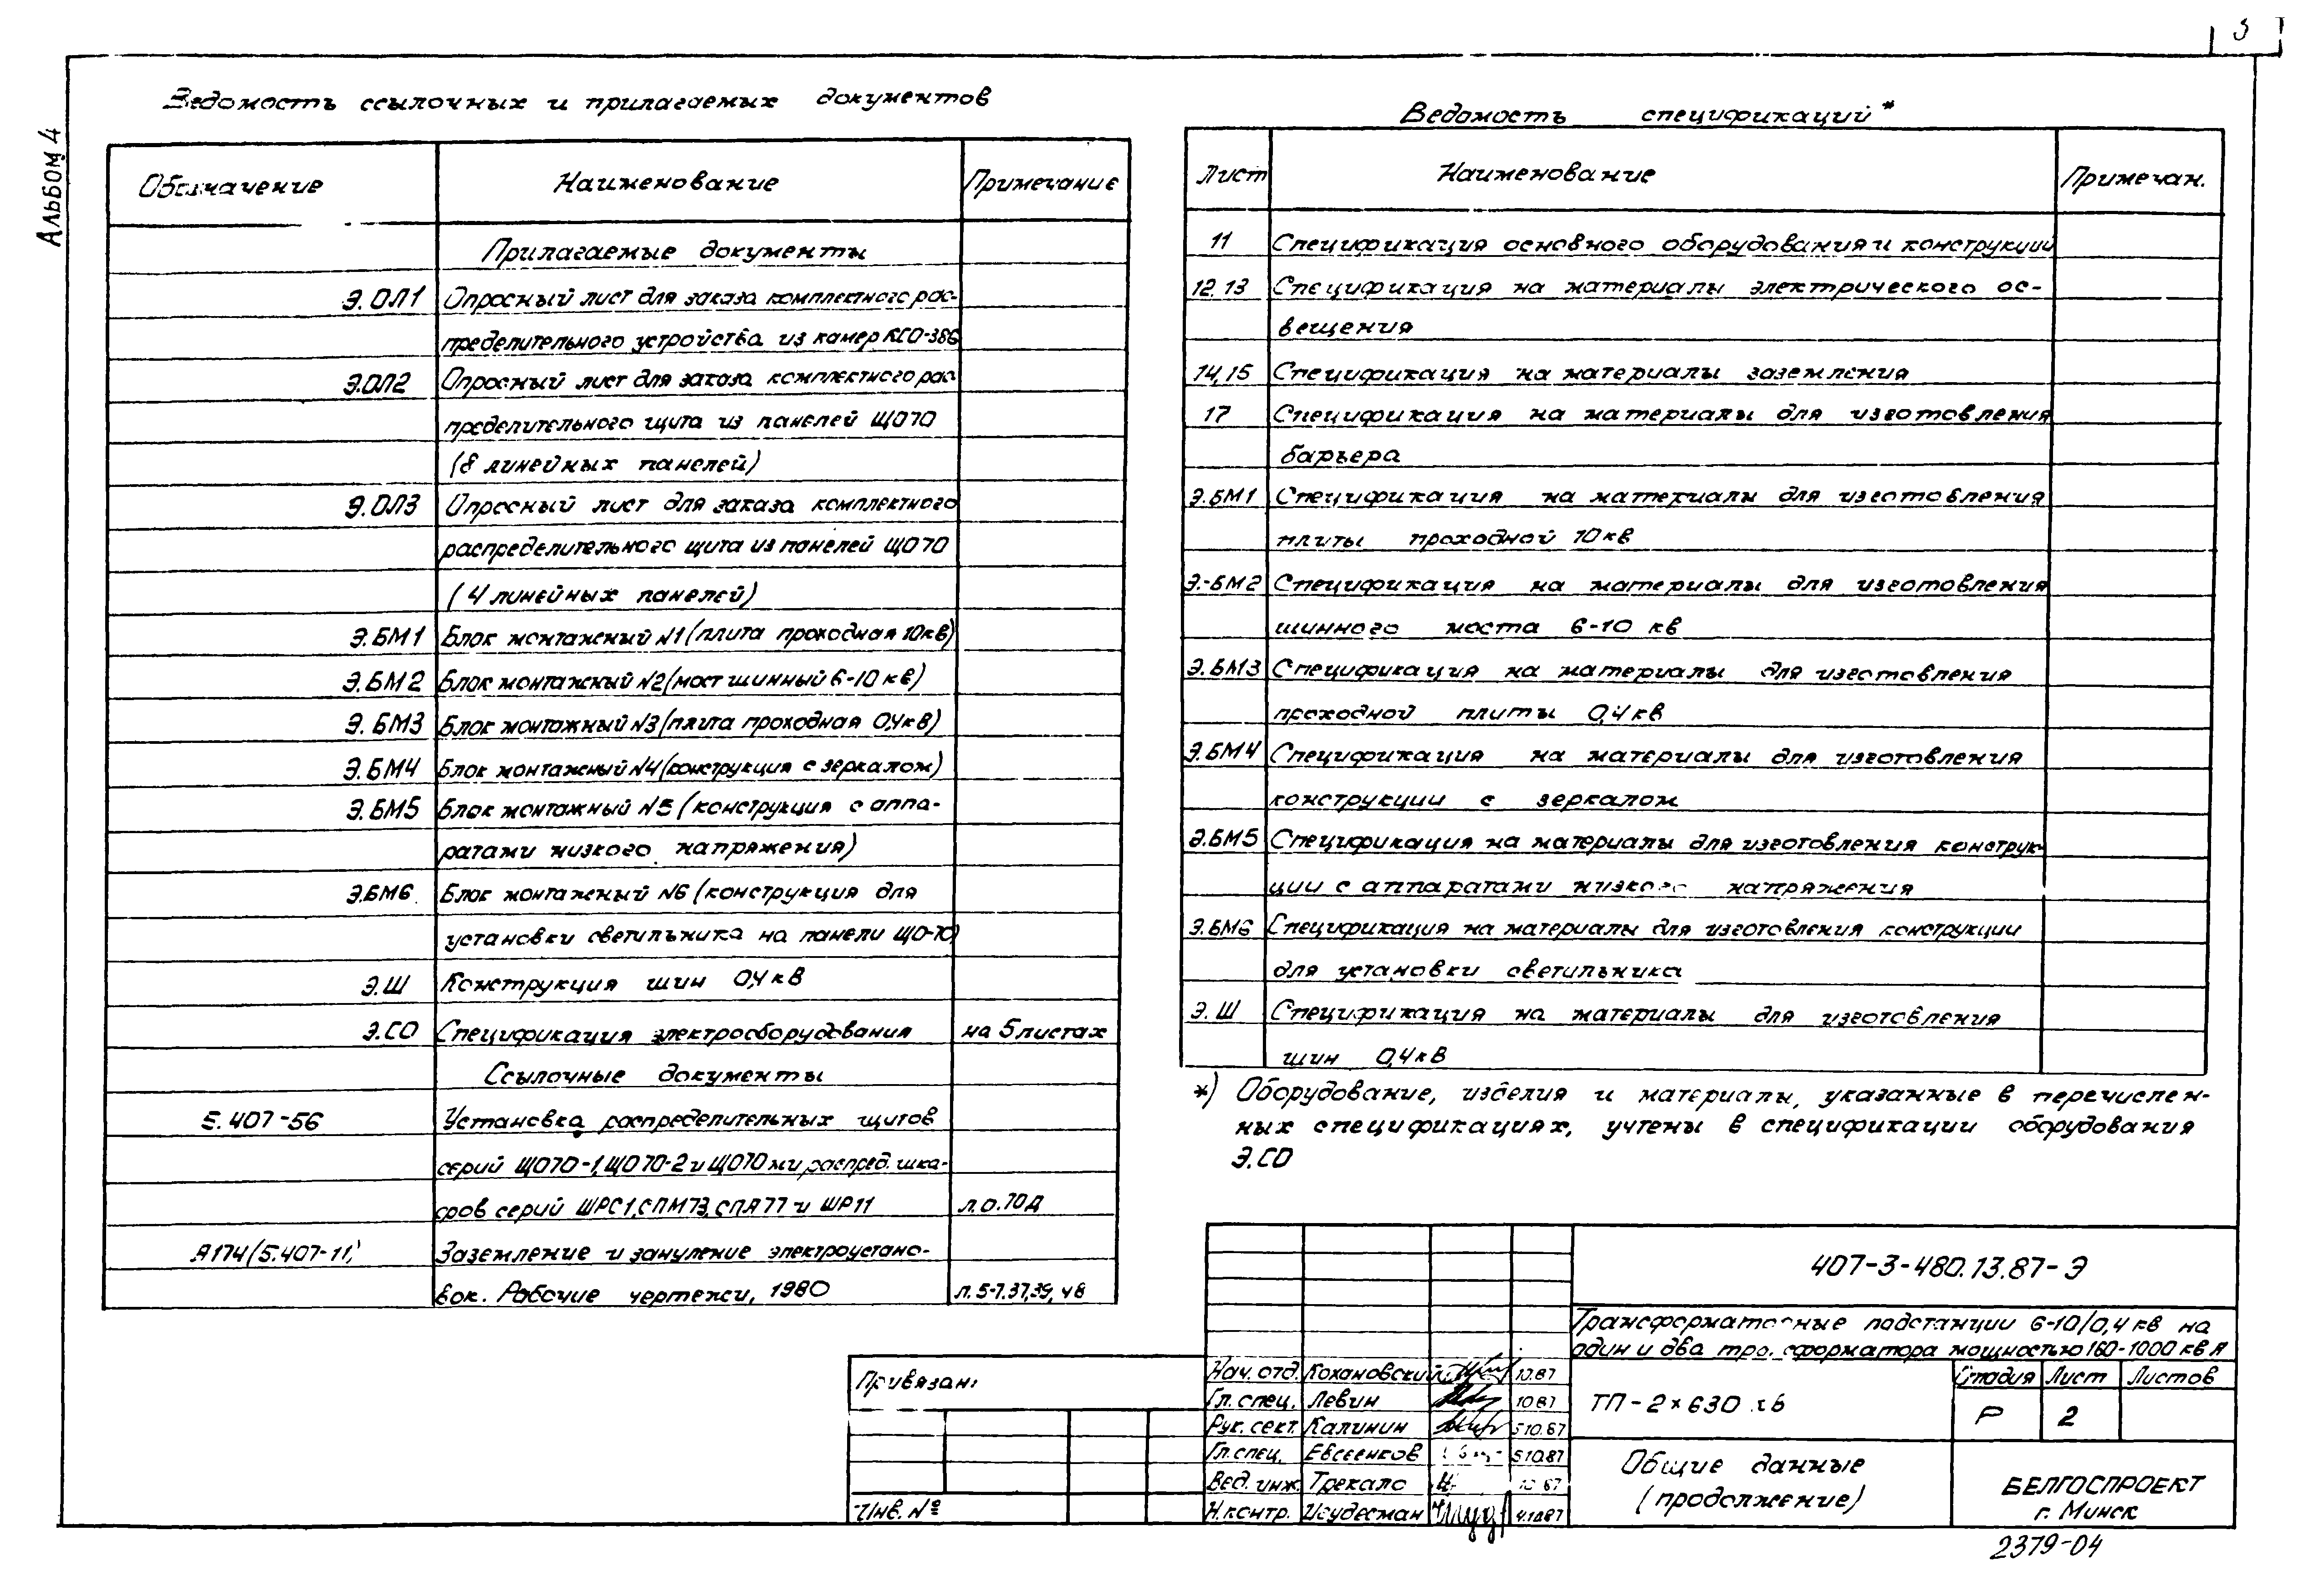 3
Альбом 4
Ведомость ссылочных и прилагаемых документов
Обозначение Наименование Примечание
Прилагаемые документы
Э.ОЛ1 Опросный лист для заказа комплектного рас-
пределительного устройства из камер КСО-386
Э.ОЛ2 Опросный лист для заказа комплектного рас-
пределительного щита из панелей ЩО70
(8 линейных панелей)
Э.ОЛ3 Опросный лист для заказа комплектного
распределительного щита из панелей ЩО70
(4 линейных панелей)
Э.БМ1 Блок монтажный №1 (плита проходная 10кВ)
Э.БМ2 Блок монтажный №2 (мост шинный 6-10 кВ)
Э.БМ3 Блок монтажный №3 (плита проходная 0,4кВ)
Э.БМ4 Блок монтажный №4 (конструкция с зеркалом)
Э.БМ5 Блок монтажный №5 (конструкция с аппа-
ратами низкого напряжения)
Э.БМ6 Блок монтажный №6 (конструкция для
установки светильника на панели ЩО-70)
Э.Ш Конструкция шин 0,4кВ
Э.СО Спецификация электрооборудования на 5 листах
Ссылочные документы
5.407-56 Установка распределительных щитов
серий ЩО70-1, ЩО70-2 и ЩО70м и распред. шка-
фов серий ШРС1, СПМ73, СПА77 и ШР11 л.о.70Д
А174(5.407-11) Заземление и зануление электроустано-
вок. Рабочие чертежи, 1980 л.5-7,37,39,48
Ведомость спецификаций *
Лист Наименование Примечан.
11 Спецификация основного оборудования и конструкций
12,13 Спецификация на материалы электрического ос-
вещения
14,15 Спецификация на материалы заземления
17 Спецификация на материалы для изготовления
барьера
Э.БМ1 Спецификация на материалы для изготовления
плиты проходной 10кв
Э.-БМ2 Спецификация на материалы для изготовления
шинного моста 6-10 кв
Э.БМ3 Спецификация на материалы для изготовления
проходной плиты 0,4кв
Э.БМ4 Спецификация на материалы для изготовления
конструкции с зеркалом
Э.БМ5 Спецификация на материалы для изготовления конструк-
ции с аппаратами низкого напряжения
Э.БМ6 Спецификация на материалы для изготовления конструкции
для установки светильника
Э.Ш Спецификация на материалы для изготовления
шин 0,4кВ
*) Оборудование, изделия и материалы, указанные в перечислен-
ных спецификациях, учтены в спецификации оборудования
Э.СО
407-3-480.13.87-Э
Трансформаторные подстанции 6-10/0,4кв на
один и два трансформатора мощностью 160-1000 кВА
ТП-2×630
Стадия Лист Листов
Р 2
Общие данные
(продолжение)
БЕЛГОСПРОЕКТ
г. Минск
Нач. отд. Кохановский 10.87
Гл. спец. Левин 10.87
Рук. сект. Калинин 5.10.87
Гл. спец. Евсеенков 5.10.87
Вед. инж. Трекало 10.87
Н.контр. 4.10.87
Привязан:
Инв. №
2379-04